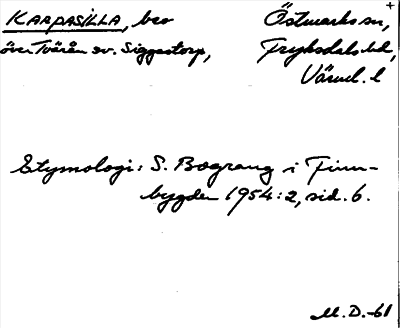 KARPASILLA, bro
över Tvärån sv. Siggestorp,
Östmarks sn,
Fryksdals hd,
Värml. l
Etymologi: S. Bograng i Finn-
bygden 1954:2, sid. 6.
M.D.-61